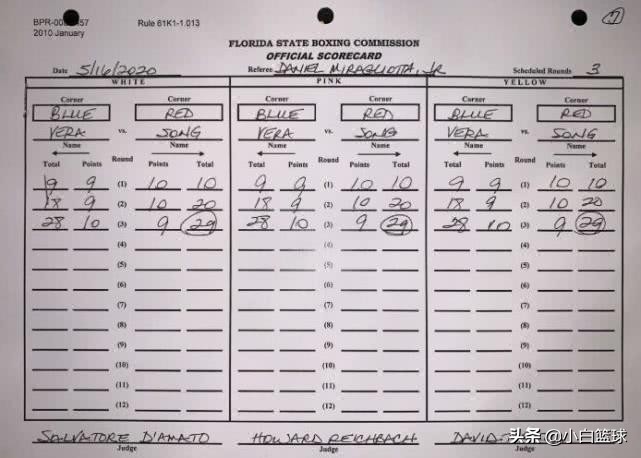 BPR-00 457 Rule 61K1-1.013 7
2010 January
FLORIDA STATE BOXING COMMISSION
OFFICIAL SCORECARD
Date 5/16/2020 Referee DANIEL MIRAGLIOTTA, JR Scheduled Rounds 3
WHITE PINK YELLOW
Corner Corner Corner Corner Corner Corner
BLUE RED BLUE RED BLUE RED
VERA vs. SONG VERA vs. SONG VERA vs. SONG
Name Name Name Name Name Name
Total Points Round Points Total Total Points Round Points Total Total Points Round Points Total
9 9 (1) 10 10 9 9 (1) 10 10 9 9 (1) 10 10
18 9 (2) 10 20 18 9 (2) 10 20 18 9 (2) 10 20
28 10 (3) 9 29 28 10 (3) 9 29 28 10 (3) 9 29
(4) (4) (4)
(5) (5) (5)
(6) (6) (6)
(7) (7) (7)
(8) (8) (8)
(9) (9) (9)
(10) (10) (10)
(11) (11) (11)
(12) (12) (12)
SALVATORE D'AMATO HOWARD REICHBACH DAVID
Judge Judge Judge
头条 @小白篮球